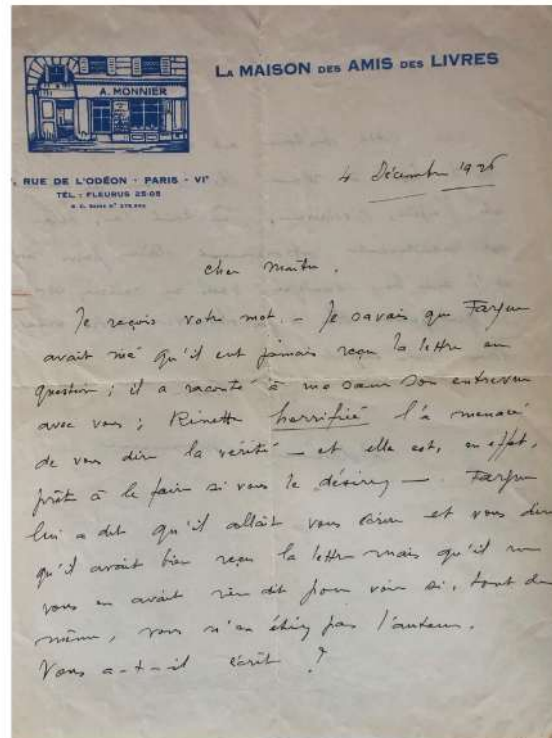 LA MAISON DES AMIS DES LIVRES
A. MONNIER
, RUE DE L'ODÉON - PARIS - VIᵉ
TÉL : FLEURUS 25-05
4 Décembre 1926
Cher Maître,
Je reçois votre mot. — Je savais que Fargue
avait nié qu'il eut jamais reçu la lettre en
question ; il a raconté à ma sœur son entrevue
avec vous ; Rinette horrifiée l'a menacé
de vous dire la vérité — et elle est, en effet,
prête à le faire si vous le désirez — Fargue
lui a dit qu'il allait vous écrire et vous dire
qu'il avait bien reçu la lettre mais qu'il ne
vous en avait rien dit pour voir si, tout de
même, vous n'en étiez pas l'auteur.
Vous a-t-il écrit ?